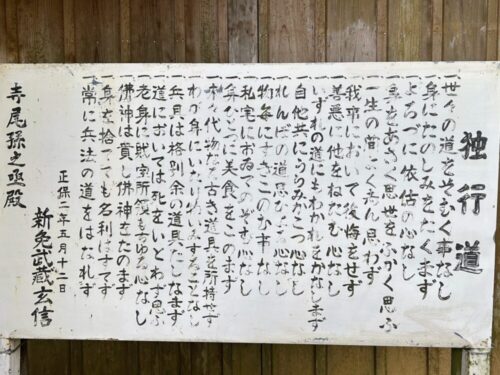 独行道
一世々の道をそむく事なし
一身にたのしみをたくまず
一よろづに依怙の心なし
一身をあさく思世をふかく思ふ
一一生の間よくしん思わず
一我事において後悔をせず
一善悪に他をねたむ心なし
一いずれの道にもわかれをかなしまず
一自他共にうらみかこつ心なし
一れんぼの道思ひよる心なし
一物毎にすきこのむ事なし
一私宅においてのぞむ心なし
一身ひとつに美食をこのまず
一末々代物なる古き道具を所持せず
一わが身にいたり物いみすることなし
一兵具は格別余の道具たしなまず
一道においては死をいとわず思ふ
一老身に財宝所領もちゆる心なし
一佛神は貴し佛神をたのまず
一身を捨ても名利はすてず
常に兵法の道をはなれず
正保二年五月十二日
新免武蔵玄信
寺尾孫之亟殿